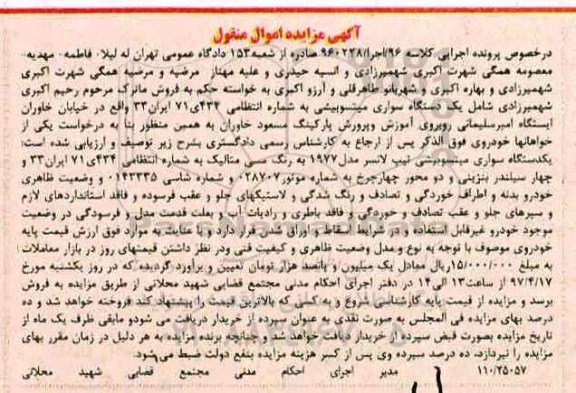 آگهی مزایده اموال منقول
درخصوص پرونده اجرایی کلاسه ۹۶/اجرا/۹۶۰۲۲۸ صادره از شعبه ۱۵۳ دادگاه عمومی تهران له لیلا- فاطمه- مهدیه-
معصومه همگی شهرت اکبری شهمیرزادی و انسیه حیدری و علیه مهناز مرضیه و مرضیه همگی شهرت اکبری
شهمیرزادی و بهاره اکبری و شهربانو طاهرقلی و آرزو اکبری به خواسته حکم به فروش ماترک مرحوم رحیم اکبری
شهمیرزادی شامل یک دستگاه سواری میتسوبیشی به شماره انتظامی ۴۳۴ی۷۱ ایران۳۳ واقع در خیابان خاوران
ایستگاه امیرسلیمانی روبروی آموزش وپرورش پارکینگ مسعود خاوران به همین منظور بنا به درخواست یکی از
خواهانها خودروی فوق الذکر پس از ارجاع به کارشناس رسمی دادگستری بشرح زیر توصیف و ارزیابی شده است:
یکدستگاه سواری میتسوبیشی تیپ لانسر مدل۱۹۷۷ به رنگ مسی متالیک به شماره انتظامی ۴۳۴ی۷۱ ایران۳۳ و
چهار سیلندر بنزینی و دو محور چهارچرخ به شماره موتور۰۲۸۷۰۷ و شماره شاسی ۰۱۴۳۳۳۵ و وضعیت ظاهری
خودرو بدنه و اطراف خوردگی و تصادف و رنگ شدگی و لاستیکهای جلو و عقب فرسوده و فاقد استانداردهای لازم
و سپرهای جلو و عقب تصادف و خوردگی و فاقد باطری و رادیات آب و بعلت قدمت مدل و فرسودگی در وضعیت
موجود خودرو غیرقابل استفاده و در شرایط اسقاط و اوراق شدن قرار دارد و با عنایت به موارد فوق ارزش قیمت پایه
خودروی موصوف با توجه به نوع و مدل وضعیت ظاهری و کیفیت فنی ودر نظر داشتن قیمتهای روز در بازار معاملات
به مبلغ ۱۵/۰۰۰/۰۰۰ریال معادل یک میلیون و پانصد هزار تومان تعیین و برآورد گردیده که در روز یکشنبه مورخ
۹۷/۴/۱۷ از ساعت۱۳ الی۱۴ در دفتر اجرای احکام مدنی مجتمع قضایی شهید محلاتی از طریق مزایده به فروش
برسد و مزایده از قیمت پایه کارشناسی شروع و به کسی که بالاترین قیمت را پیشنهاد کند فروخته خواهد شد و ده
درصد بهای مزایده فی المجلس به صورت نقدی به عنوان سپرده از خریدار دریافت می شودو مابقی ظرف یک ماه از
تاریخ مزایده بصورت قبض سپرده از خریدار دریافت خواهد شد و چنانچه برنده مزایده به هر دلیل در زمان مقرر بهای
مزایده را نپردازد، ده درصد سپرده وی پس از کسر هزینه مزایده بنفع دولت ضبط می‌شود.
۱۱۰/۲۵۰۵۷ مدیر اجرای احکام مدنی مجتمع قضایی شهید محلاتی